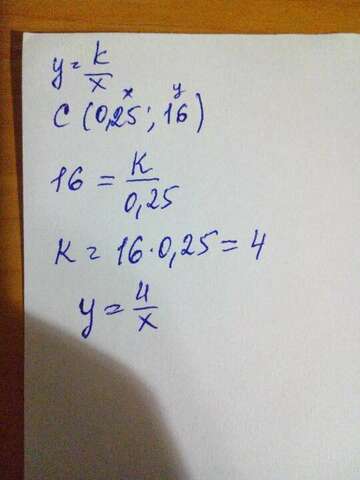 y = k/x
x y
C (0,25; 16)
16 = K/0,25
K = 16·0,25 = 4
y = 4/x